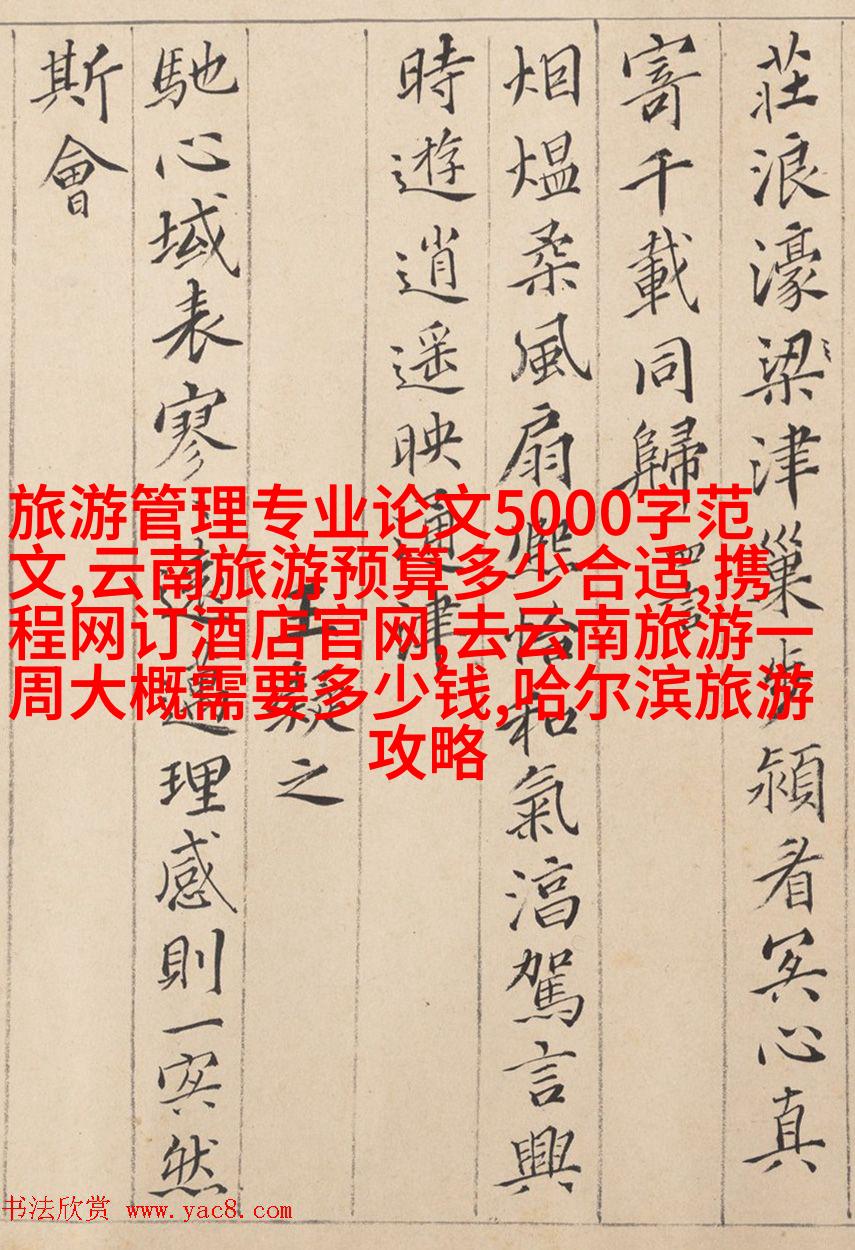 莊浪濠梁津巢步潁眉冥心真
寄千載同歸
烟熅柔風扇熙怡和氣淳駕言興
時遊逍遥映通津
王凝之
馳心域表寥遠邁理感則一冥然
斯會
旅游管理专业论文5000字范
文,云南旅游预算多少合适,携
程网订酒店官网,去云南旅游一
周大概需要多少钱,哈尔滨旅游
攻略
书法欣赏 www.yac8.com